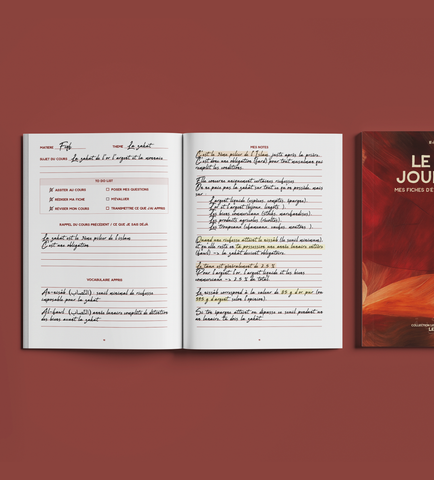 MATIÈRE : Fiqh THÈME : La zakat
SUJET DU COURS : La zakat de l'or, l'argent et la monnaie
TO DO LIST
ASSISTER AU COURS
POSER MES QUESTIONS
RÉDIGER MA FICHE
M'ÉVALUER
RÉVISER MON COURS
TRANSMETTRE CE QUE J'AI APPRIS
RAPPEL DU COURS PRÉCÉDENT / CE QUE JE SAIS DÉJÀ
La zakat est le 3ème pilier de l'islam
C'est une obligation
VOCABULAIRE APPRIS
An-nisâb : seuil minimal de richesse
imposable pour la zakat
Al-hawl : année lunaire complète de détention
des biens avant la zakat
MES NOTES
C'est le 3ème pilier de l'Islam, juste après la prière.
C'est donc une obligation (fard) pour tout musulman qui
remplit les conditions.
Elle concerne uniquement certaines richesses
On ne paie pas la zakat sur tout ce qu'on possède, mais
sur :
L'argent liquide (espèces, comptes, épargne)
L'or et l'argent (bijoux, lingots...)
Les biens commerciaux (stocks, marchandises)
Les produits agricoles (récoltes)
Les troupeaux (chameaux, vaches, moutons...)
Quand une richesse atteint le nissâb (le seuil minimum)
et qu'elle reste en ta possession une année lunaire entière
(hawl) -> la zakat devient obligatoire.
Le taux est généralement de 2,5 %
Pour l'argent, l'or, l'argent liquide et les biens
commerciaux -> 2,5 % du total.
Le nissâb correspond à la valeur de 85 g d'or pur (ou
595 g d'argent selon l'opinion).
Si ton épargne atteint ou dépasse ce seuil pendant un
an lunaire, tu dois la zakat.
LE
JOUR
MES FICHES D'É
COLLECTION
LE